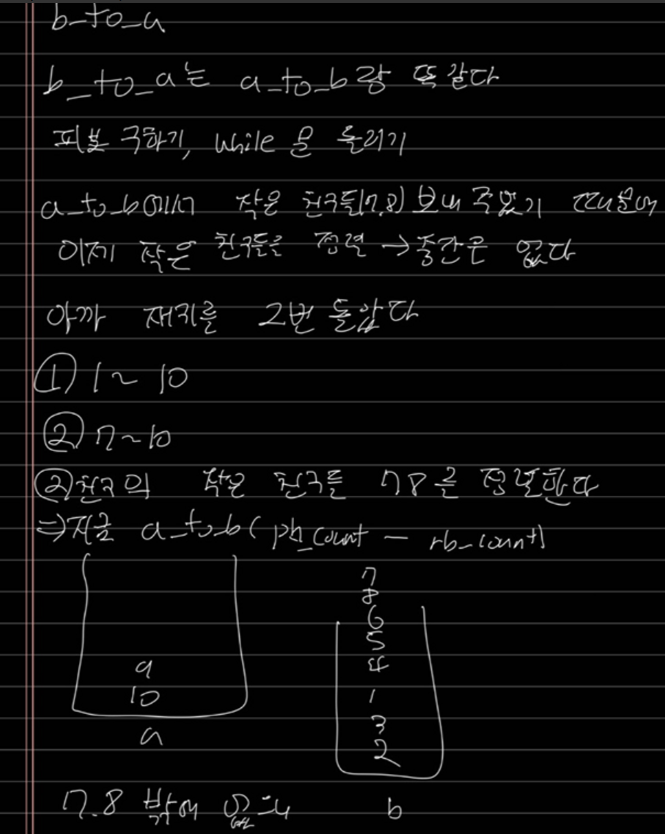 b_to_a
b_to_a는 a_to_b랑 똑같다
피봇 구하기, while 문 돌리기
a_to_b에서 작은 친구들(7,8) 보내주었기 때문에
이제 작은 친구들을 정렬 → 중간은 없다
아까 재귀를 2번 돌았다
① 1 ~ 10
② 7 ~ 10
②친구의 작은 친구들 7 8을 정렬한다
⇒지금 a_to_b( pb_count - rb_count)
7
8
6
5
9 4
10 1
3
a 2
7.8 밖에 없으니 b